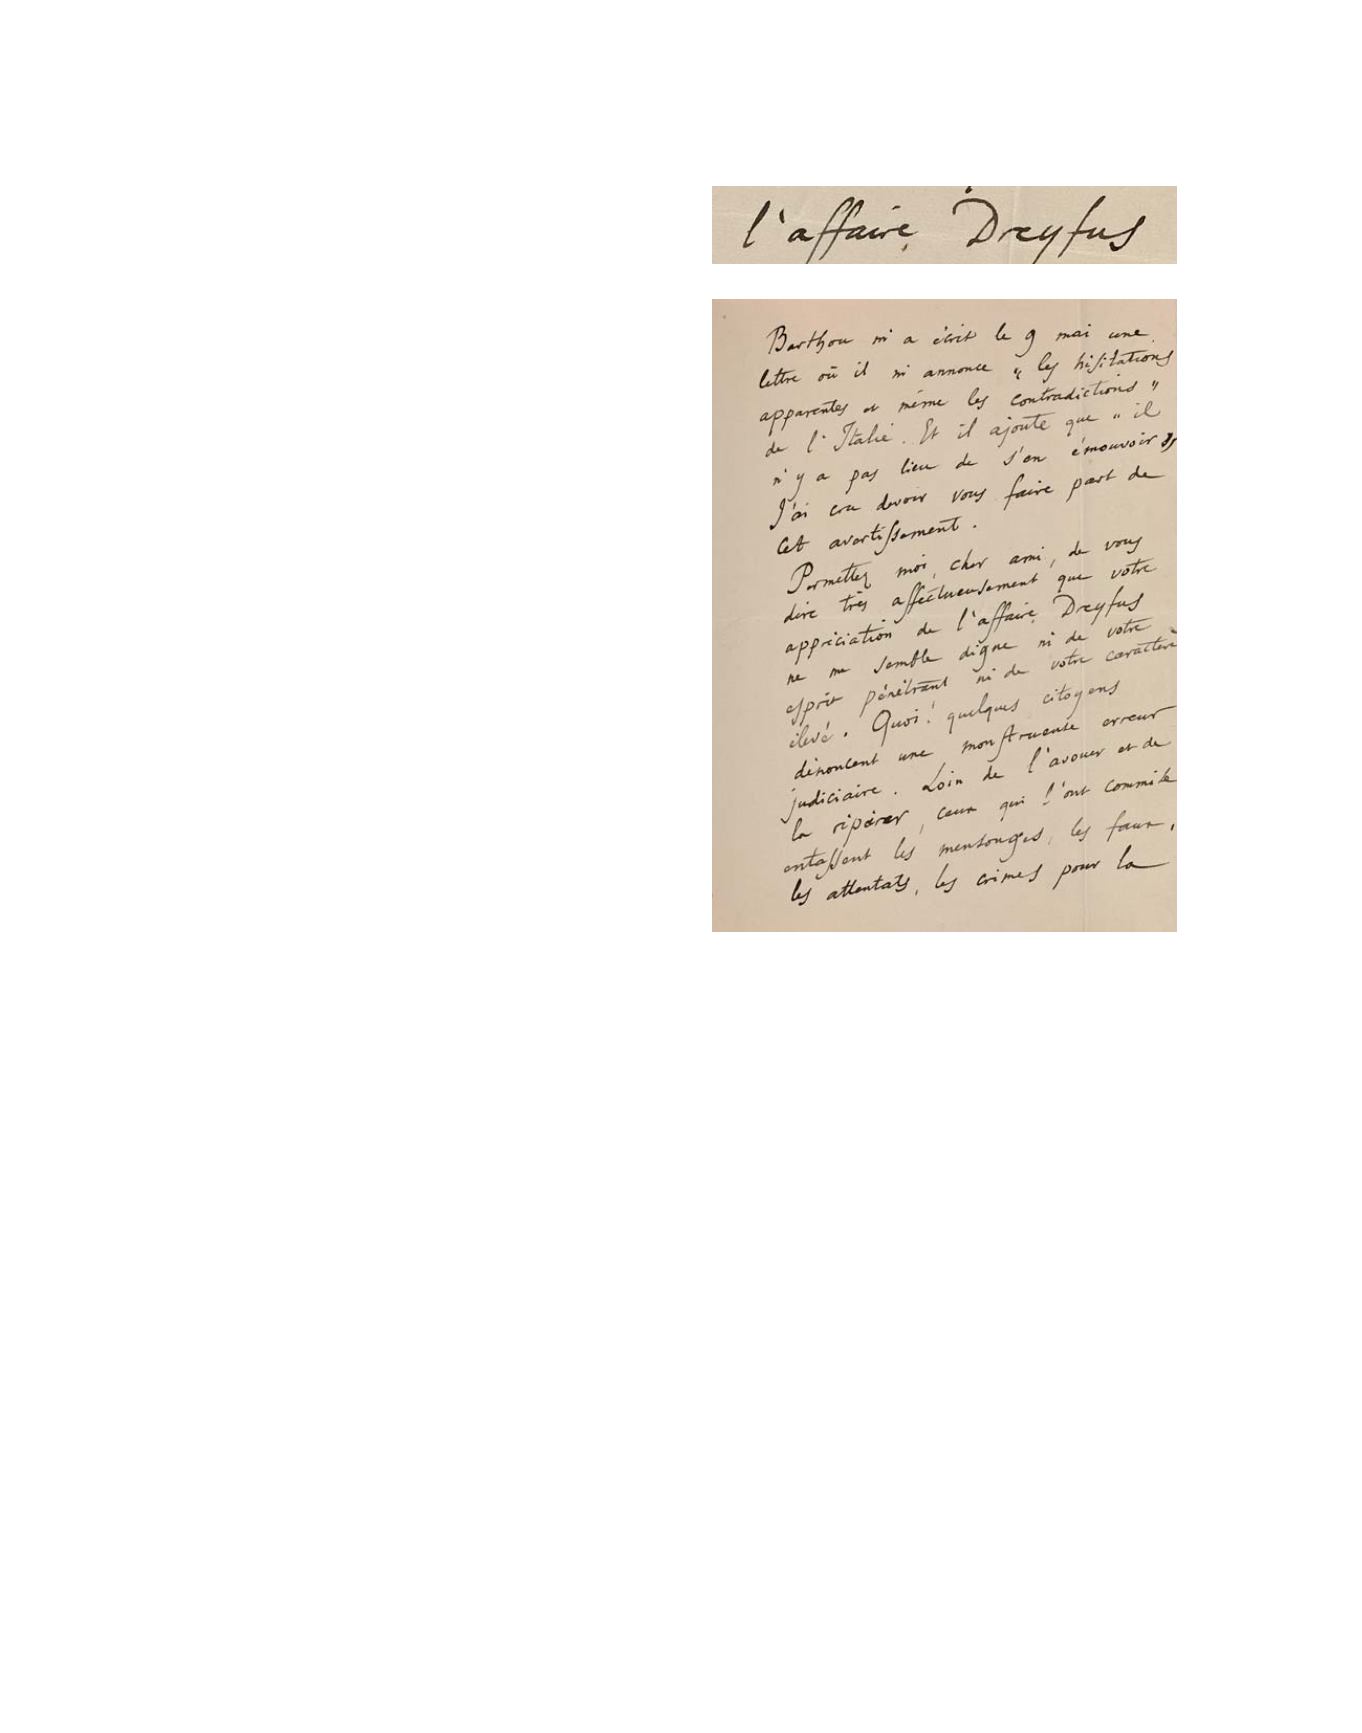 l'affaire Dreyfus
Barthou m'a écrit le 9 mai une
lettre où il m'annonce "les hésitations
apparentes et même les contradictions"
de l'Italie. Et il ajoute que "il
n'y a pas lieu de s'en émouvoir"
J'ai cru devoir vous faire part de
cet avertissement.
Permettez moi, cher ami, de vous
dire très affectueusement que votre
appréciation de l'affaire Dreyfus
ne me semble digne ni de votre
esprit pénétrant ni de votre caractère
élevé. Quoi! quelques citoyens
dénoncent une monstrueuse erreur
judiciaire. Loin de l'avouer et de
la réparer, ceux qui l'ont commise
entassent les mensonges, les faux,
les attentats, les crimes pour la